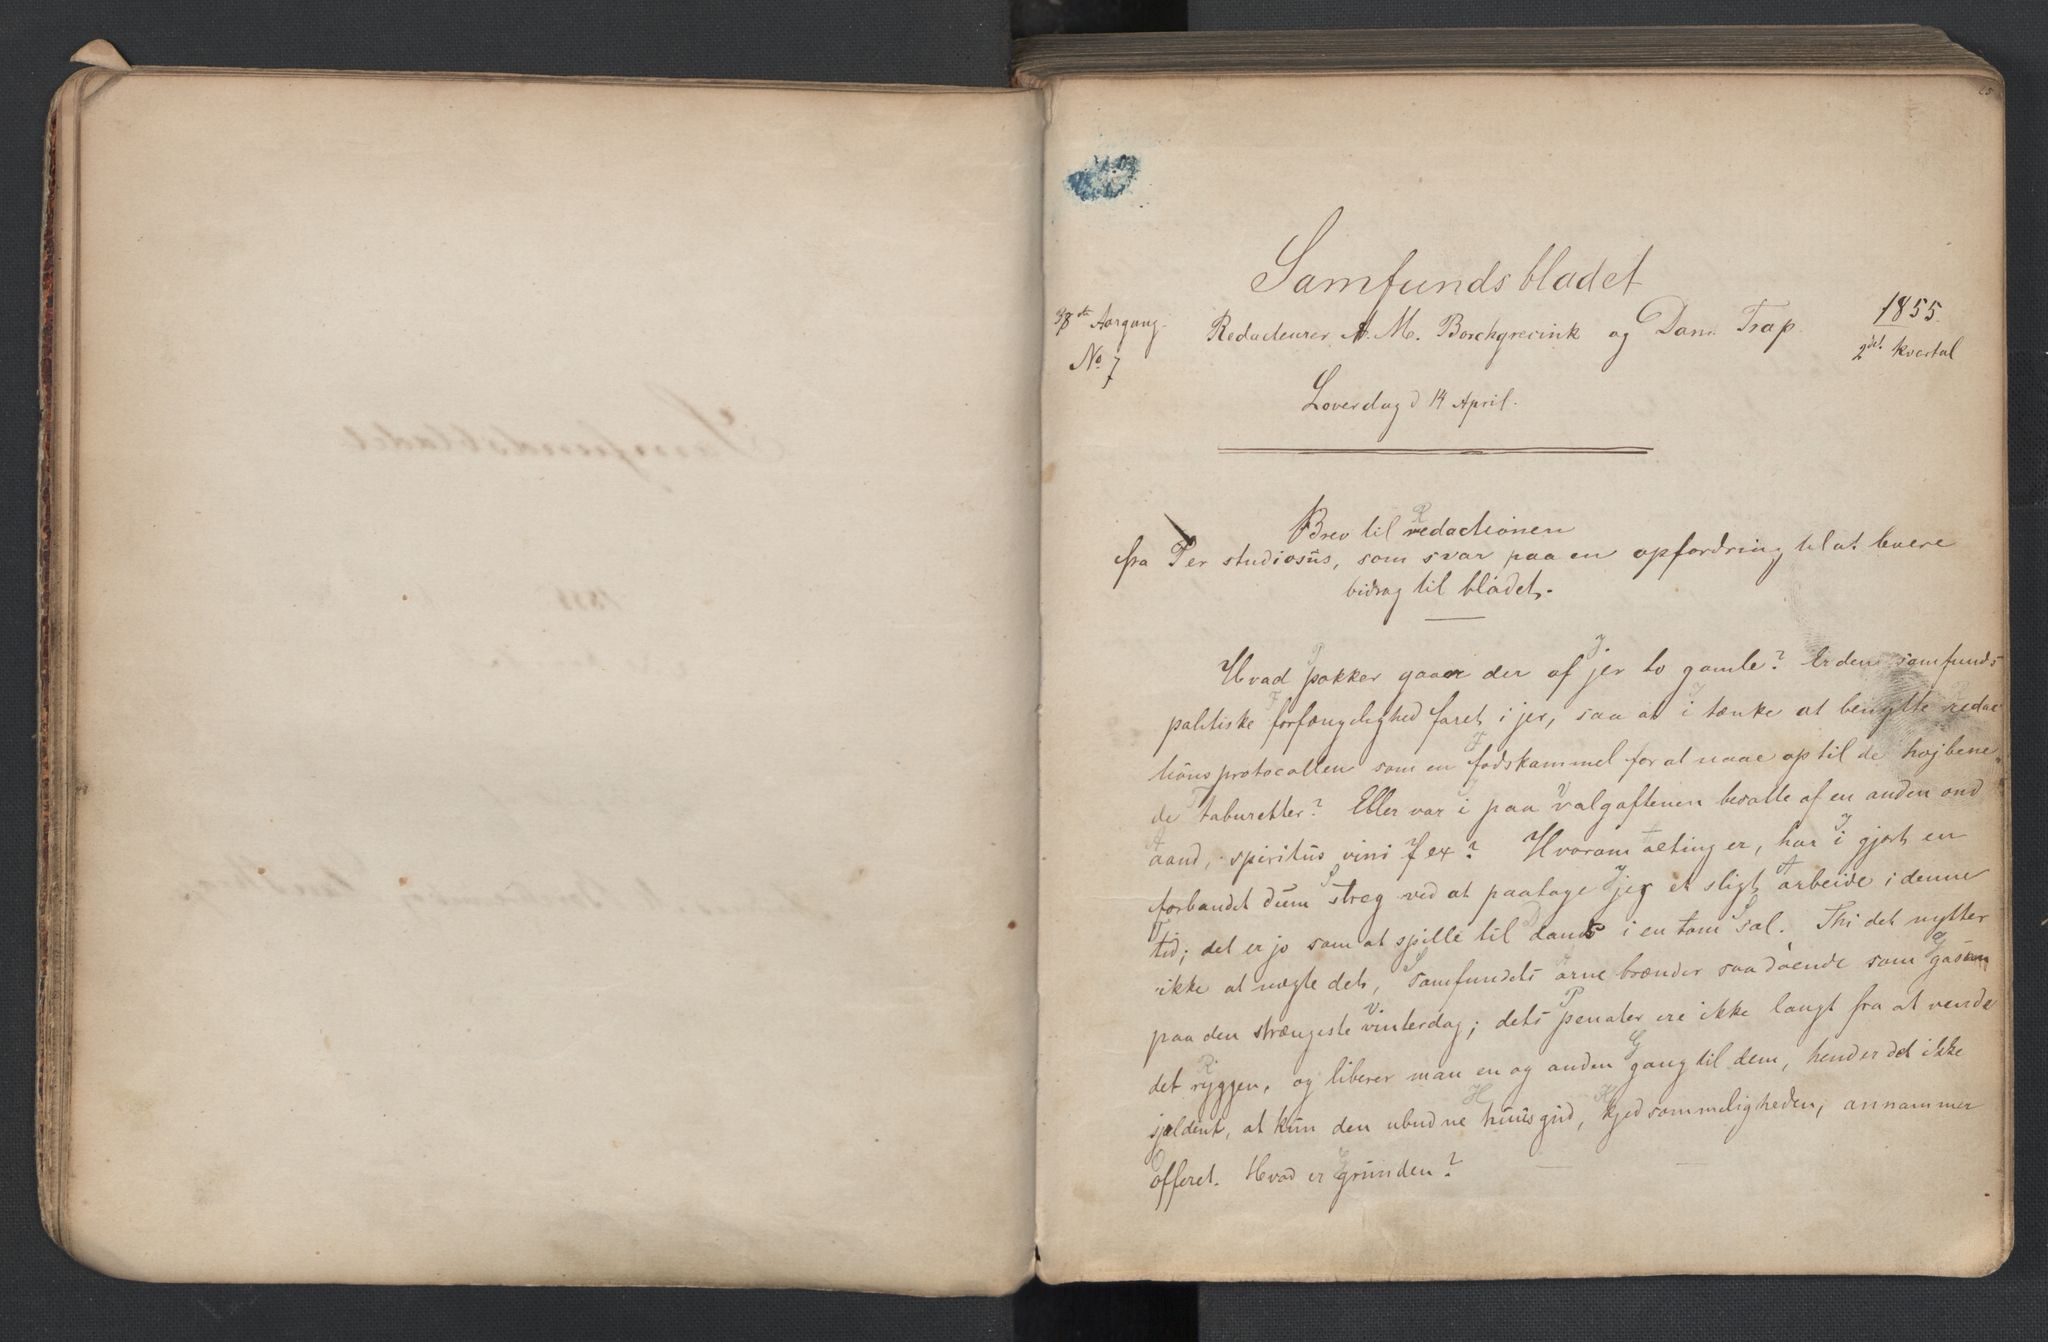 25
Samfundsbladet
38te Aargang.
No 7
Redacteurer A. M. Borchgrevink og Dan. Trap.
1855.
2det kvartal
Løverdag d 14 April.
Brev til redactionen
fra Per studiosus, som svar paa en opfordring til at levere
bidrag til bladet.
Hvad pokker gaaer der af jer to gamle? Er den samfunds
politiske forfængelighed faret i jer, saa at i tænke at benytte redac
tionsprotocollen som en fodskammel for at naae op til de højbene
de taburetter? Eller var i paa valgaftenen besatte af en anden ond
aand, spiritus vini f ex? Hvorom alting er, har i gjort en
forbandet dum streg ved at paatage jer et sligt arbeide i denne
tid; det er jo som at spille til dands i en tom sal. Thi det nytter
ikke at nægte det, samfundets arne brænder saa døende som gasen
paa den strængeste vinterdag; dets penater ere ikke langt fra at vende
det ryggen, og liberer man en og anden gang til dem, hender det ikke
sjeldent, at kun den ubudne huusgud, kjedsommeligheden, annammer
offeret. Hvad er grunden?